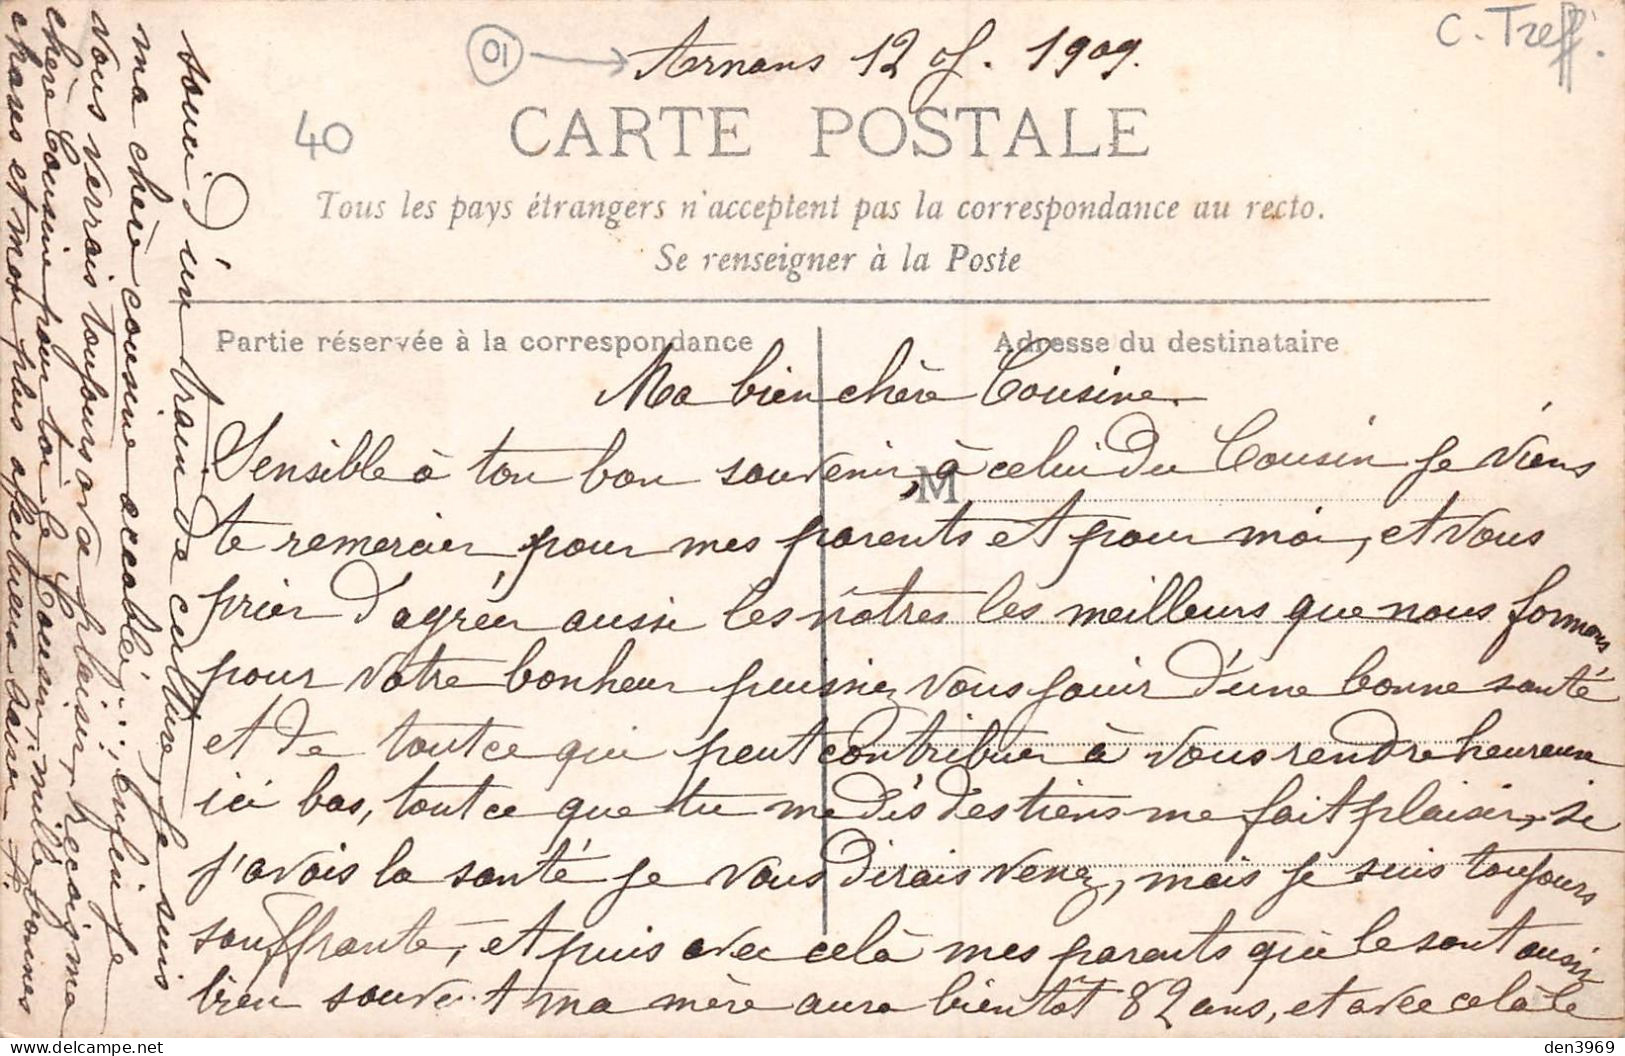 C. Treff.
01 → Arnans 12 J. 1909.
40
CARTE POSTALE
Tous les pays étrangers n'acceptent pas la correspondance au recto.
Se renseigner à la Poste
Partie réservée à la correspondance
Adresse du destinataire
M
Ma bien chère Cousine.
Sensible à ton bon souvenir, à celui du Cousin je viens
te remercier pour mes parents et pour moi, et vous
prier d'agréer aussi les nôtres les meilleurs que nous formons
pour votre bonheur puissiez vous jouir d'une bonne santé
et de tout ce qui peut contribuer à vous rendre heureux
ici bas, tout ce que tu me dis des tiens me fait plaisir, si
j'avais la santé je vous dirais venez, mais je suis toujours
souffrante, et puis avec celà mes parents qui le sont aussi
bien souvent ma mère aura bientôt 82 ans, et avec celà le
souci d'un train de culture, je suis
ma chère cousine accablée...; enfin je
vous verrais toujours avec plaisir, reçois ma
chère Cousine pour toi le Cousin, mille bonnes
choses et mon plus affectueux baiser
den3969